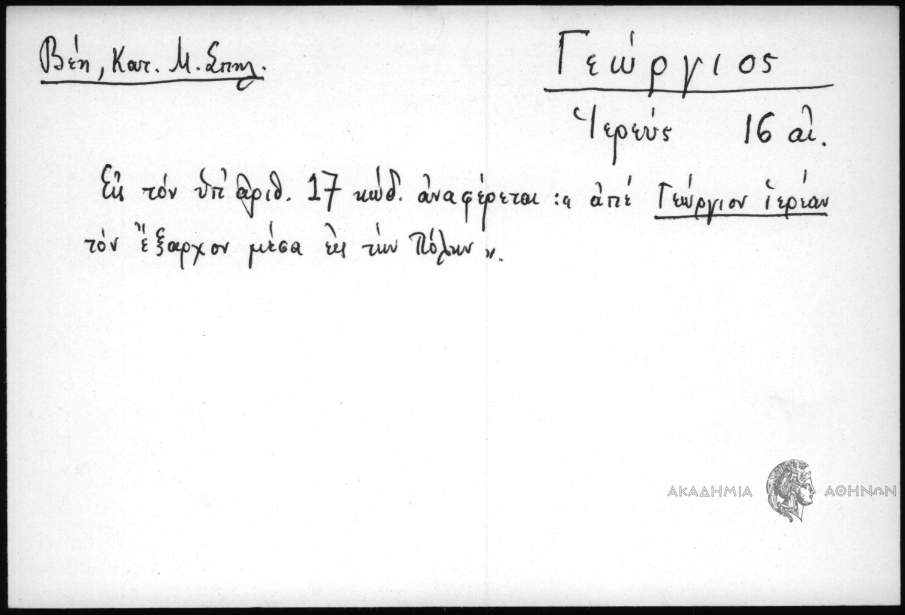 Βέη, Κατ. Μ. Σπηλ.
Γεώργιος
Ἱερεύς 16 αἰ.
Εἰς τόν ὑπ' ἀριθ. 17 κώδ. ἀναφέρεται :« ἀπέ Γεώργιον ἱερέαν
τόν ἔξαρχον μέσα εἰς τήν Πόλην».
ΑΚΑΔΗΜΙΑ ΑΘΗΝΩΝ